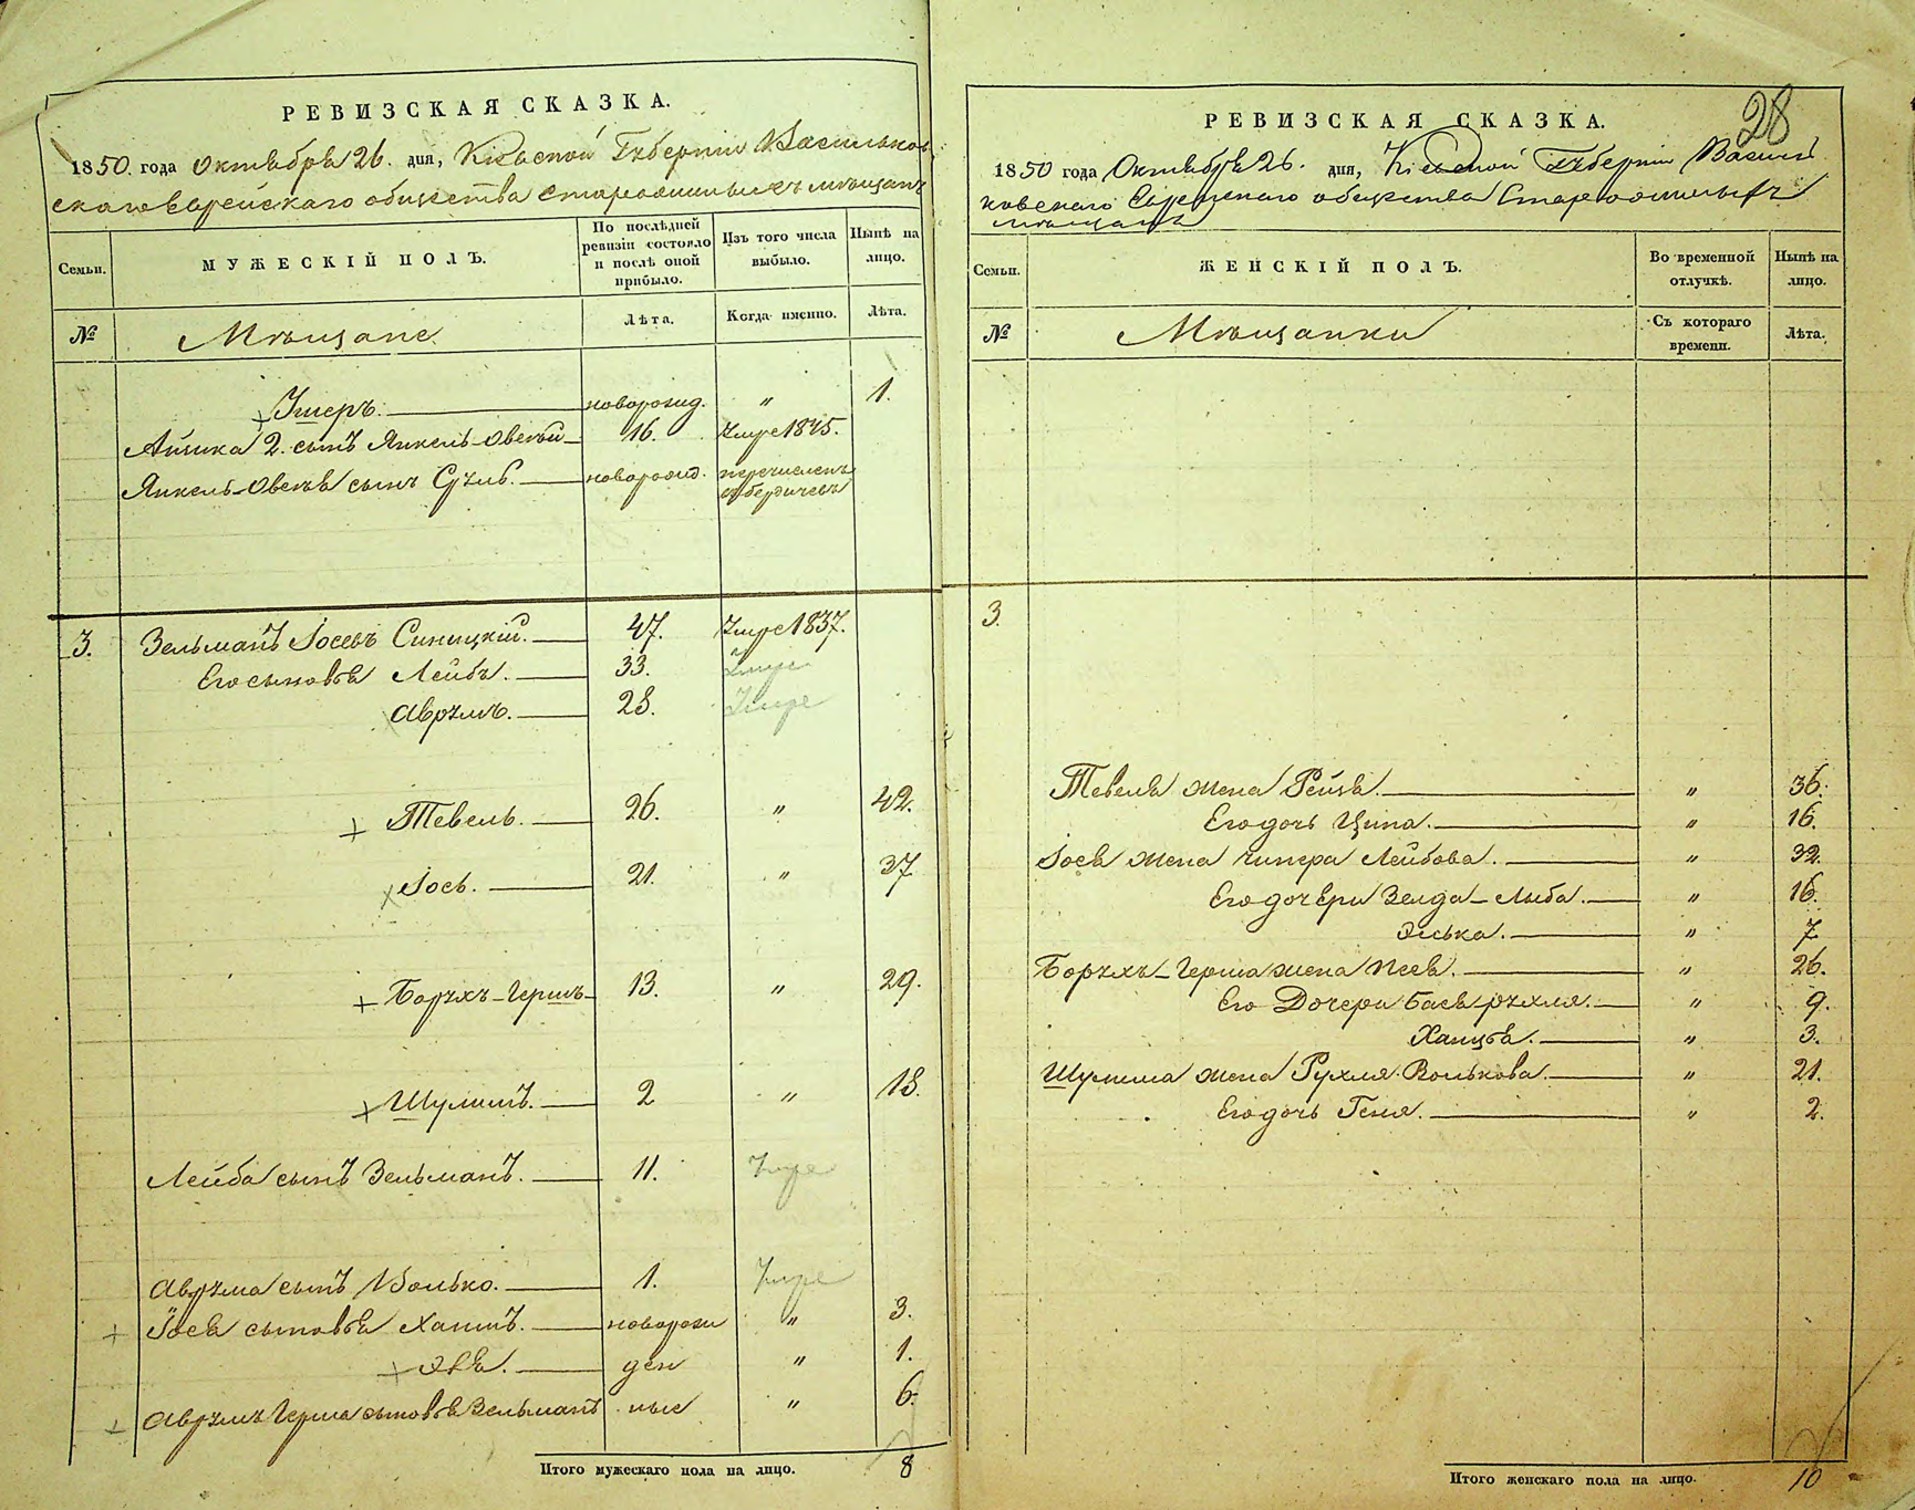 РЕВИЗСКАЯ СКАЗКА.
1850. года Октября 26. дня, Кіевской Губерніи Васильков
скаго Еврейскаго общества старожилыхъ мѣщанъ
Семьи.
МУЖЕСКІЙ ПОЛЪ.
По послѣдней ревизіи состояло и послѣ оной прибыло.
Изъ того числа выбыло.
Нынѣ на лицо.
№
Мѣщане.
Лѣта.
Когда именно.
Лѣта.
Ушеръ. новорожд. " 1.
Айзика 2. сынъ Янкель-Овсѣй 16. Умре 1845.
Янкель-Овсѣя сынъ Сруль. новорожд. перечисленъ
въ бердичевъ
3. Зельманъ Іосевъ Синицкій. 47. Умре 1837.
Его сыновья Лейбъ. 33. Умре
Аврумъ. 28. Умре
Тевель. 26. " 42.
Іось. 21. " 37
Борухъ-Гершъ 13. " 29.
Шулимъ. 2 " 18.
Лейба сынъ Зельманъ. 11. Умре
Аврума сынъ Волько. 1. Умре
Іося сыновья Хаимъ. новорож " 3.
ден " 1.
сыновья Зельманъ ные " 6.
Итого мужескаго пола на лицо. 8
28
РЕВИЗСКАЯ СКАЗКА.
1850 года Октября 26. дня, Кіевской Губерніи Василь
ковскаго Еврейскаго общества Старожилыхъ
мѣщанъ
Семьи.
ЖЕНСКІЙ ПОЛЪ.
Во временной отлучкѣ.
Нынѣ на лицо.
№
Мѣщанки
Съ котораго времени.
Лѣта.
3.
Тевеля жена Рейзя. " 36.
Его дочь Ципа. " 16.
Іося жена Чипера Лейбова. " 32.
Его дочери Зелда-Лыба. " 16.
Элька. " 7
Борухъ-Герша жена Песя. " 26.
Его Дочери Бася-рухля. " 9.
Ханця. " 3.
Шулима жена Рухля Волькова. " 21.
Его дочь Геня. " 2.
Итого женскаго пола на лицо. 10